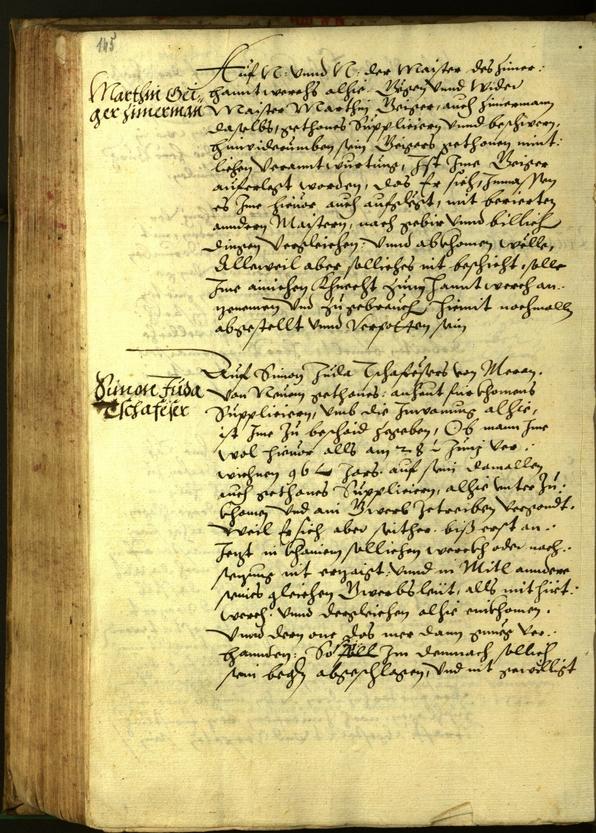 145
Marthin Gei-
ger Zimerman
Auf N: vnnd N: der Maister des Zimer-
hanntwerchs alhie. Gegen vnnd wider
Maister Marthin Geiger, auch Zimermann
daselbs, gethones Suppliciern vnnd beschwern,
hinwiderumben sein Geigers gethonen mint-
lichen Veranntwurtung, Ist Ime Geiger
auferlegt worden, das Er sich, Inmassen
es Ime hieuor auch aufgelegt, mit berierten
anndern Maistern, nach gebir vnnd billich
dingen Vergleichen: vnnd abkhomen wölle,
Alleweil aber solliches nit beschicht, solle
Ime ainichen Khnecht zum hanntwerch an-
zenemen vnd zugebrauchen hiemit nochmalln
abgestellt vnnd Verpotten sein
Simon Juda
Tschafeser
Auf Simon Juda Tschafesers von Meran.
Von Neuem gethones: anheut fürkhomens
Suppliciern, vmb die Inwonung alhie,
ist Ime zu beschaid gegeben, Ob mann Ime
wol hieuor alls am 28 Junij ver-
wichnen 96 Jars. auf sein damallen
auch gethones Suppliciern, alhie vnter zu-
khomen vnd ain Gwerb zetreiben vergondt.
Weil Er sich aber seither. biß erst an-
Jezt in khainem sollichen werch oder nach-
sezung nit erzaigt: vnnd in Mitl anndere
seines gleichen Gwerbsleüt, alls mit hiet-
werch: vnnd dergleichen alhie einkhomen.
Vnnd deren one des mer dann genueg ver-
hannden: So Im demnach sollich
sein begern abgeschlagen, vnd nit gewilligt